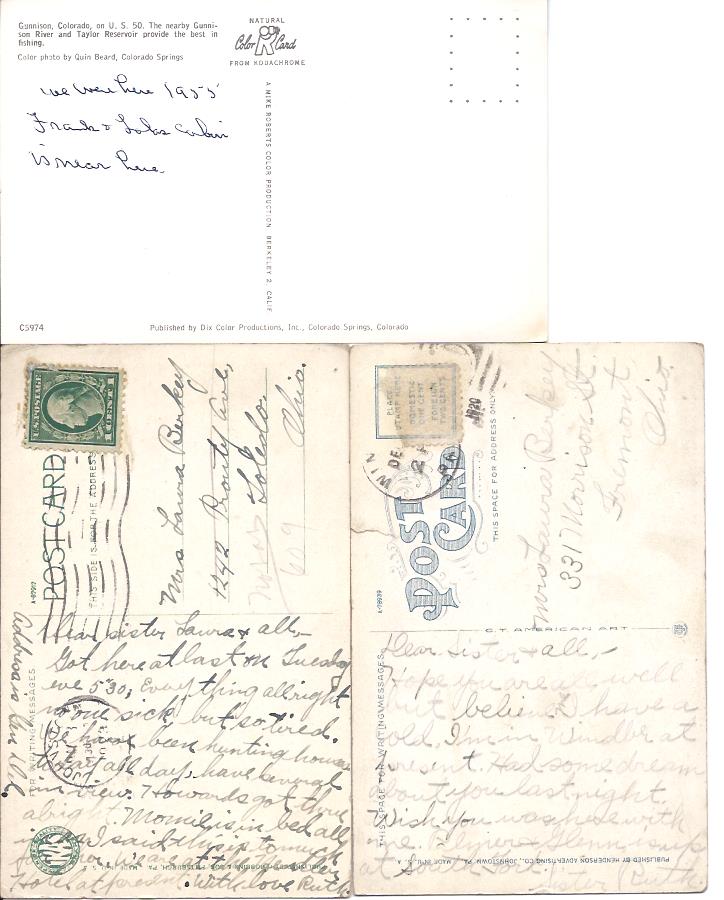 Gunnison, Colorado, on U. S. 50. The nearby Gunni-
son River and Taylor Reservoir provide the best in
fishing.
Color photo by Quin Beard, Colorado Springs
NATURAL
Color Card
FROM KODACHROME
we were here 1955
Frank & Lolas cabin
is near here.
A MIKE ROBERTS COLOR PRODUCTION BERKELEY 2, CALIF
C5974
Published by Dix Color Productions, Inc., Colorado Springs, Colorado
U.S. POSTAGE
1 CENT 1
POST CARD
THIS SIDE IS FOR THE ADDRESS
Mrs Laura Berkey
1242 Prouty Ave,
Toledo
Ohio.
609
Dear sister Laura & all,-
Got here at last Tuesday
eve 5:30, Everything allright
no one sick, but so tired.
have been hunting houses
all day, have several
in view. Howards got thru
alright. is in bed all
I said this is to much
for her. We are at
Hotel at present. With love Ruth
FOR WRITING MESSAGES
MADE IN U.S.A.
PLACE
STAMP HERE
DOMESTIC
ONE CENT
FOREIGN
TWO CENTS
1920
WIN
DE
POST
CARD
THIS SPACE FOR ADDRESS ONLY
A-78939
Mrs Laura Berkey
331 Morrison St
Fremont
Ohio.
C.T. AMERICAN ART
THIS SPACE FOR WRITING MESSAGES
PUBLISHED BY HENDERSON ADVERTISING CO., JOHNSTOWN, PA. MADE IN U. S. A.
Dear Sister & all,-
Hope you are all well
but believe I have a
cold. I'm in Windber at
present. Had some dream
about you last night.
Wish you was here with
me. Elgie & Glenn is up
at
Sister Ruth